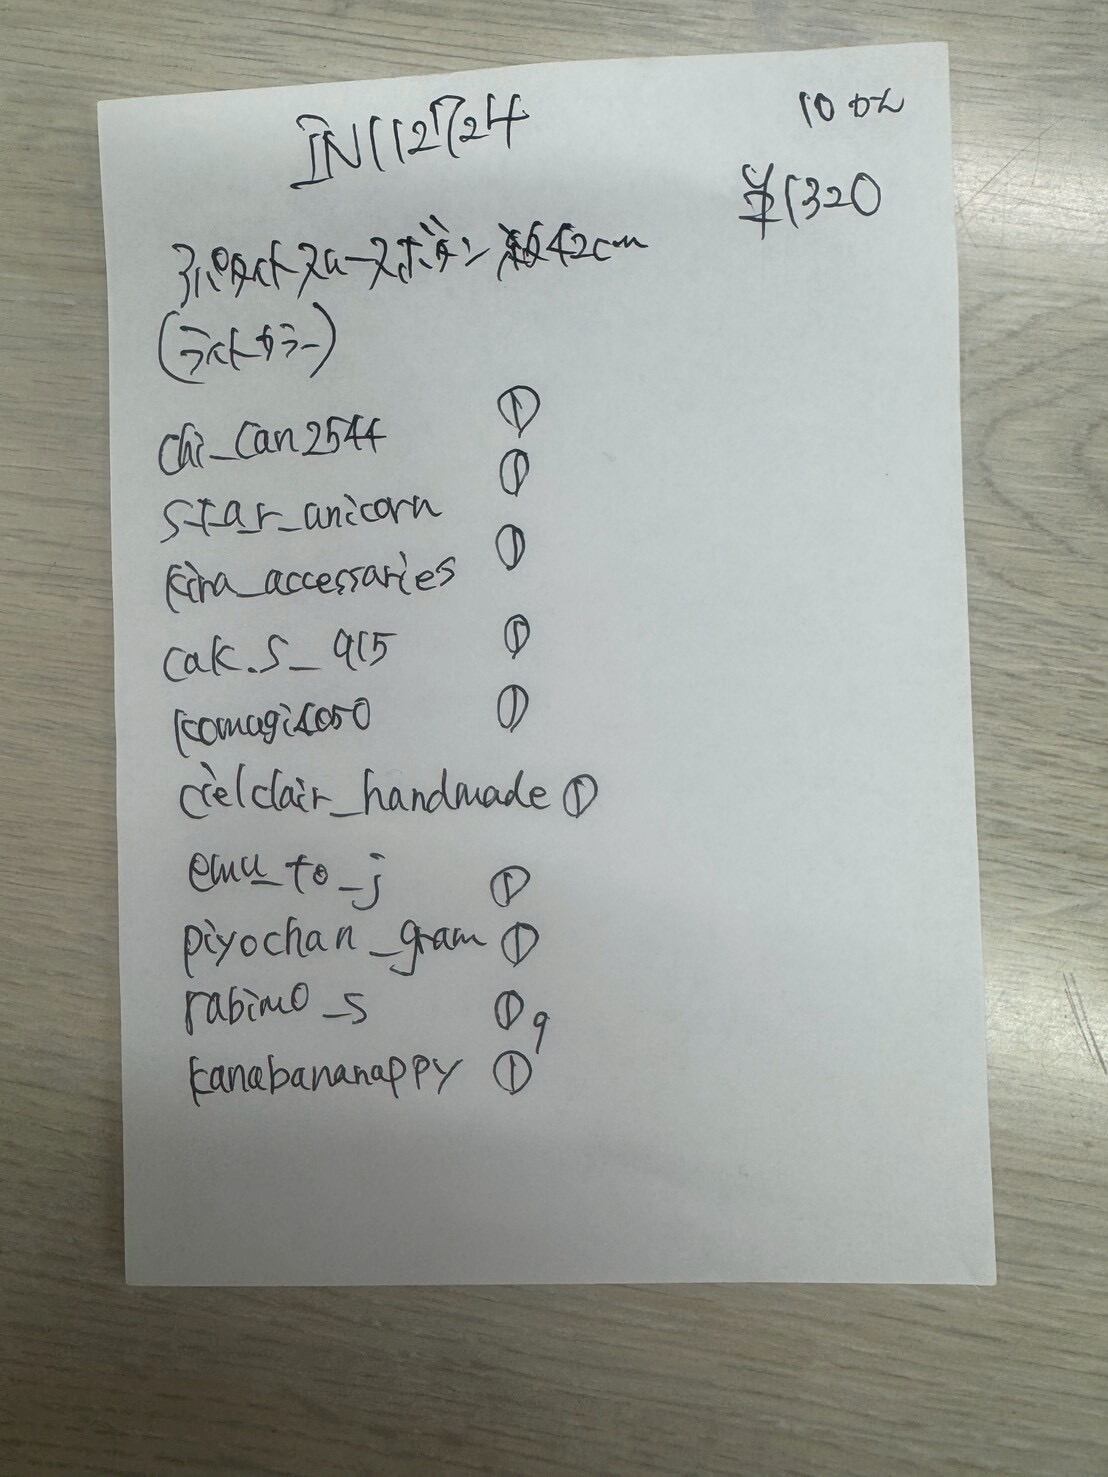 IN112724
10 かん
¥1320
42cm
(ライトカラー)
chi_can2544 ①
star_anicorn ①
kira_accessaries ①
cak.s_915 ①
komugi4050 ①
cielclair_handmade ①
emu_to_j ①
piyochan_gram ①
rabimo_s ① 9
kanabananappy ①